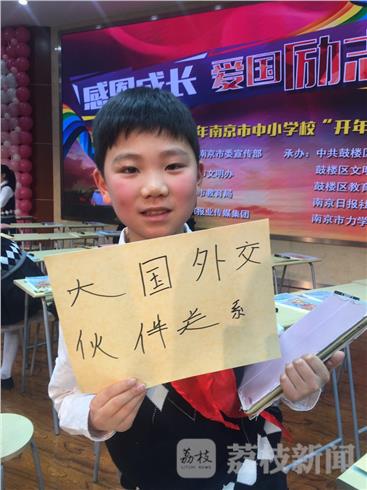 感恩成长 爱国励志
年南京市中小学校“开年
市委宣传部 承办：中共鼓楼区
市文明办 鼓楼区文明
市教育局 鼓楼区教育
报业传媒集团 南京日报社
南京市力学
大国外交
伙伴关系
荔枝
LITCHI NEWS
荔枝新闻